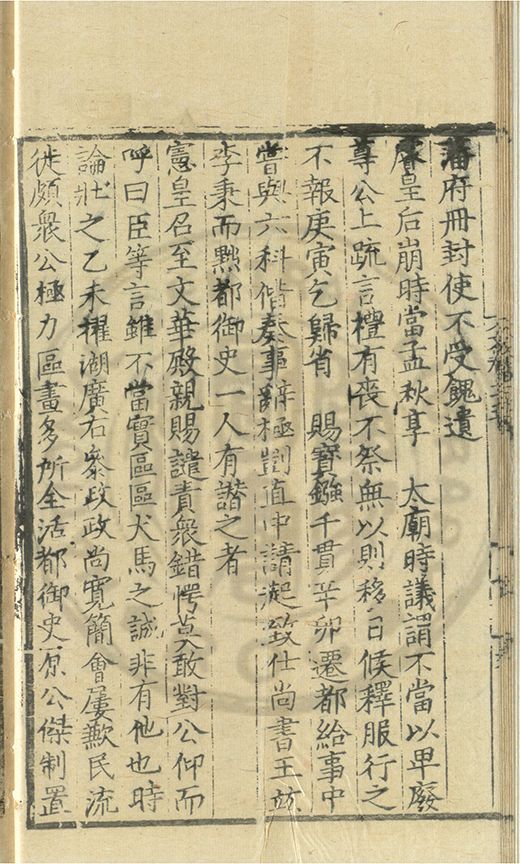 藩府冊封使不受餽遺
睿皇后崩時當孟秋享　太廟時議謂不當以卑廢
尊公上疏言禮有喪不祭無以則移日候釋服行之
不報庚寅乞歸省　賜寶鏹千貫辛卯遷都給事中
嘗與六科偕奏事辭極剴直中請起致仕尚書王竑
李秉而黜都御史一人有譖之者
憲皇召至文華殿親賜譴責衆錯愕莫敢對公仰而
呼曰臣等言雖不當實區區犬馬之誠非有他也時
論壯之乙未擢湖廣右叅政政尚寬簡會屢歉民流
徙頗衆公極力區畫多所全活都御史原公傑制置